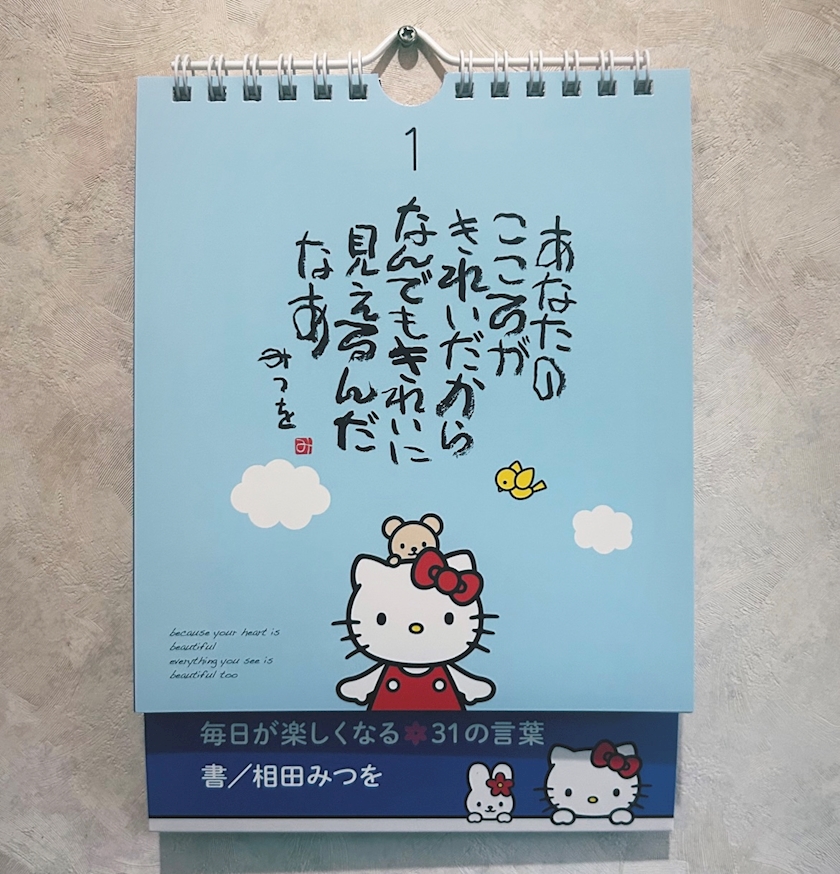 1
あなたの
こころが
きれいだから
なんでもきれいに
見えるんだ
なあ
みつを
み
because your heart is
beautiful
everything you see is
beautiful too
毎日が楽しくなる✽31の言葉
書／相田みつを